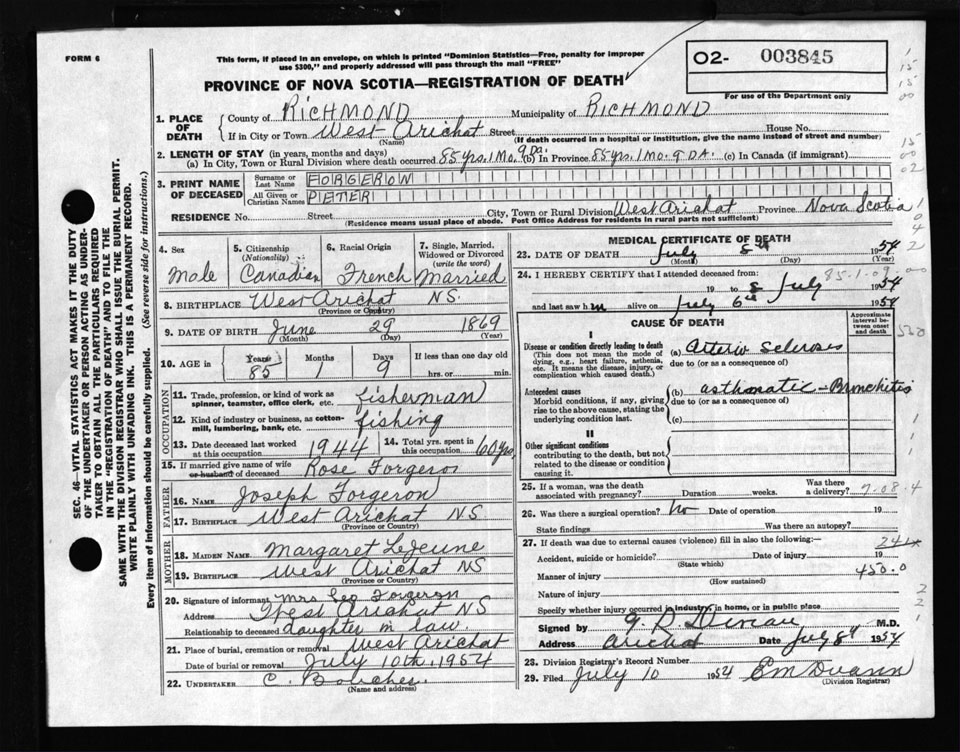 FORM 6
This form, if placed in an envelope, on which is printed "Dominion Statistics—Free, penalty for improper
use $300," and properly addressed will pass through the mail "FREE"
02- 003845
For use of the Department only
PROVINCE OF NOVA SCOTIA—REGISTRATION OF DEATH
1. PLACE OF DEATH
County of RICHMOND Municipality of RICHMOND
If in City or Town West Arichat Street House No.
(Name) (If death occurred in a hospital or institution, give the name instead of street and number)
2. LENGTH OF STAY (in years, months and days)
(a) In City, Town or Rural Division where death occurred 85 yrs. 1 Mo. 9 Da. (b) In Province 85 yrs. 1 Mo. 9 DA. (c) In Canada (if immigrant)
3. PRINT NAME OF DECEASED
Surname or Last Name FORGERON
All Given or Christian Names PETER
RESIDENCE No. Street City, Town or Rural Division West Arichat Province Nova Scotia
(Residence means usual place of abode. Post Office Address for residents in rural parts not sufficient)
4. Sex Male
5. Citizenship (Nationality) Canadian
6. Racial Origin French
7. Single, Married, Widowed or Divorced (write the word) Married
8. BIRTHPLACE West Arichat NS.
(Province or Country)
9. DATE OF BIRTH June 29 1869
(Month) (Day) (Year)
10. AGE in Years 85 Months 1 Days 9 If less than one day old
hrs. or min.
OCCUPATION
11. Trade, profession, or kind of work as spinner, teamster, office clerk, etc. fisherman
12. Kind of industry or business, as cotton-mill, lumbering, bank, etc. fishing
13. Date deceased last worked at this occupation 1944 14. Total yrs. spent in this occupation 60 yrs
15. If married give name of wife or husband of deceased Rose Forgeron
FATHER
16. NAME Joseph Forgeron
17. BIRTHPLACE West Arichat NS
(Province or Country)
MOTHER
18. MAIDEN NAME Margaret LeJeune
19. BIRTHPLACE West Arichat NS
(Province or Country)
20. Signature of informant Mrs Geo Forgeron
Address West Arichat NS
Relationship to deceased daughter in law
21. Place of burial, cremation or removal West Arichat
Date of burial or removal July 10th, 1954
22. UNDERTAKER C.
(Name and address)
MEDICAL CERTIFICATE OF DEATH
23. DATE OF DEATH July 8th 1954
(Month) (Day) (Year)
24. I HEREBY CERTIFY that I attended deceased from: 85.1.09.
19 to 8 July 1954
and last saw him alive on July 6th 1954
CAUSE OF DEATH
Approximate interval between onset and death
I
Disease or condition directly leading to death
(This does not mean the mode of dying, e.g., heart failure, asthenia, etc. It means the disease, injury, or complication which caused death.)
(a) Arterio Scleroses
due to (or as a consequence of)
Antecedent causes
Morbid conditions, if any, giving rise to the above cause, stating the underlying condition last.
(b) asthmatic - Bronchites
due to (or as a consequence of)
(c)
II
Other significant conditions
contributing to the death, but not related to the disease or condition causing it.
25. If a woman, was the death associated with pregnancy? Duration weeks. Was there a delivery?
26. Was there a surgical operation? No Date of operation 19
State findings Was there an autopsy?
27. If death was due to external causes (violence) fill in also the following:
Accident, suicide or homicide? Date of injury 19
(State which)
Manner of injury 450.0
(How sustained)
Nature of injury
Specify whether injury occurred in industry, in home, or in public place
Signed by M.D.
Address Arichat Date July 8th 1954
28. Division Registrar's Record Number
29. Filed July 10 1954
(Division Registrar)
SEC. 46—VITAL STATISTICS ACT MAKES IT THE DUTY
OF THE UNDERTAKER OR PERSON ACTING AS UNDER-
TAKER TO OBTAIN ALL THE PARTICULARS REQUIRED
IN THE "REGISTRATION OF DEATH" AND TO FILE THE
SAME WITH THE DIVISION REGISTRAR WHO SHALL ISSUE THE BURIAL PERMIT.
WRITE PLAINLY WITH UNFADING INK. THIS IS A PERMANENT RECORD.
Every item of information should be carefully supplied. (See reverse side for instructions.)